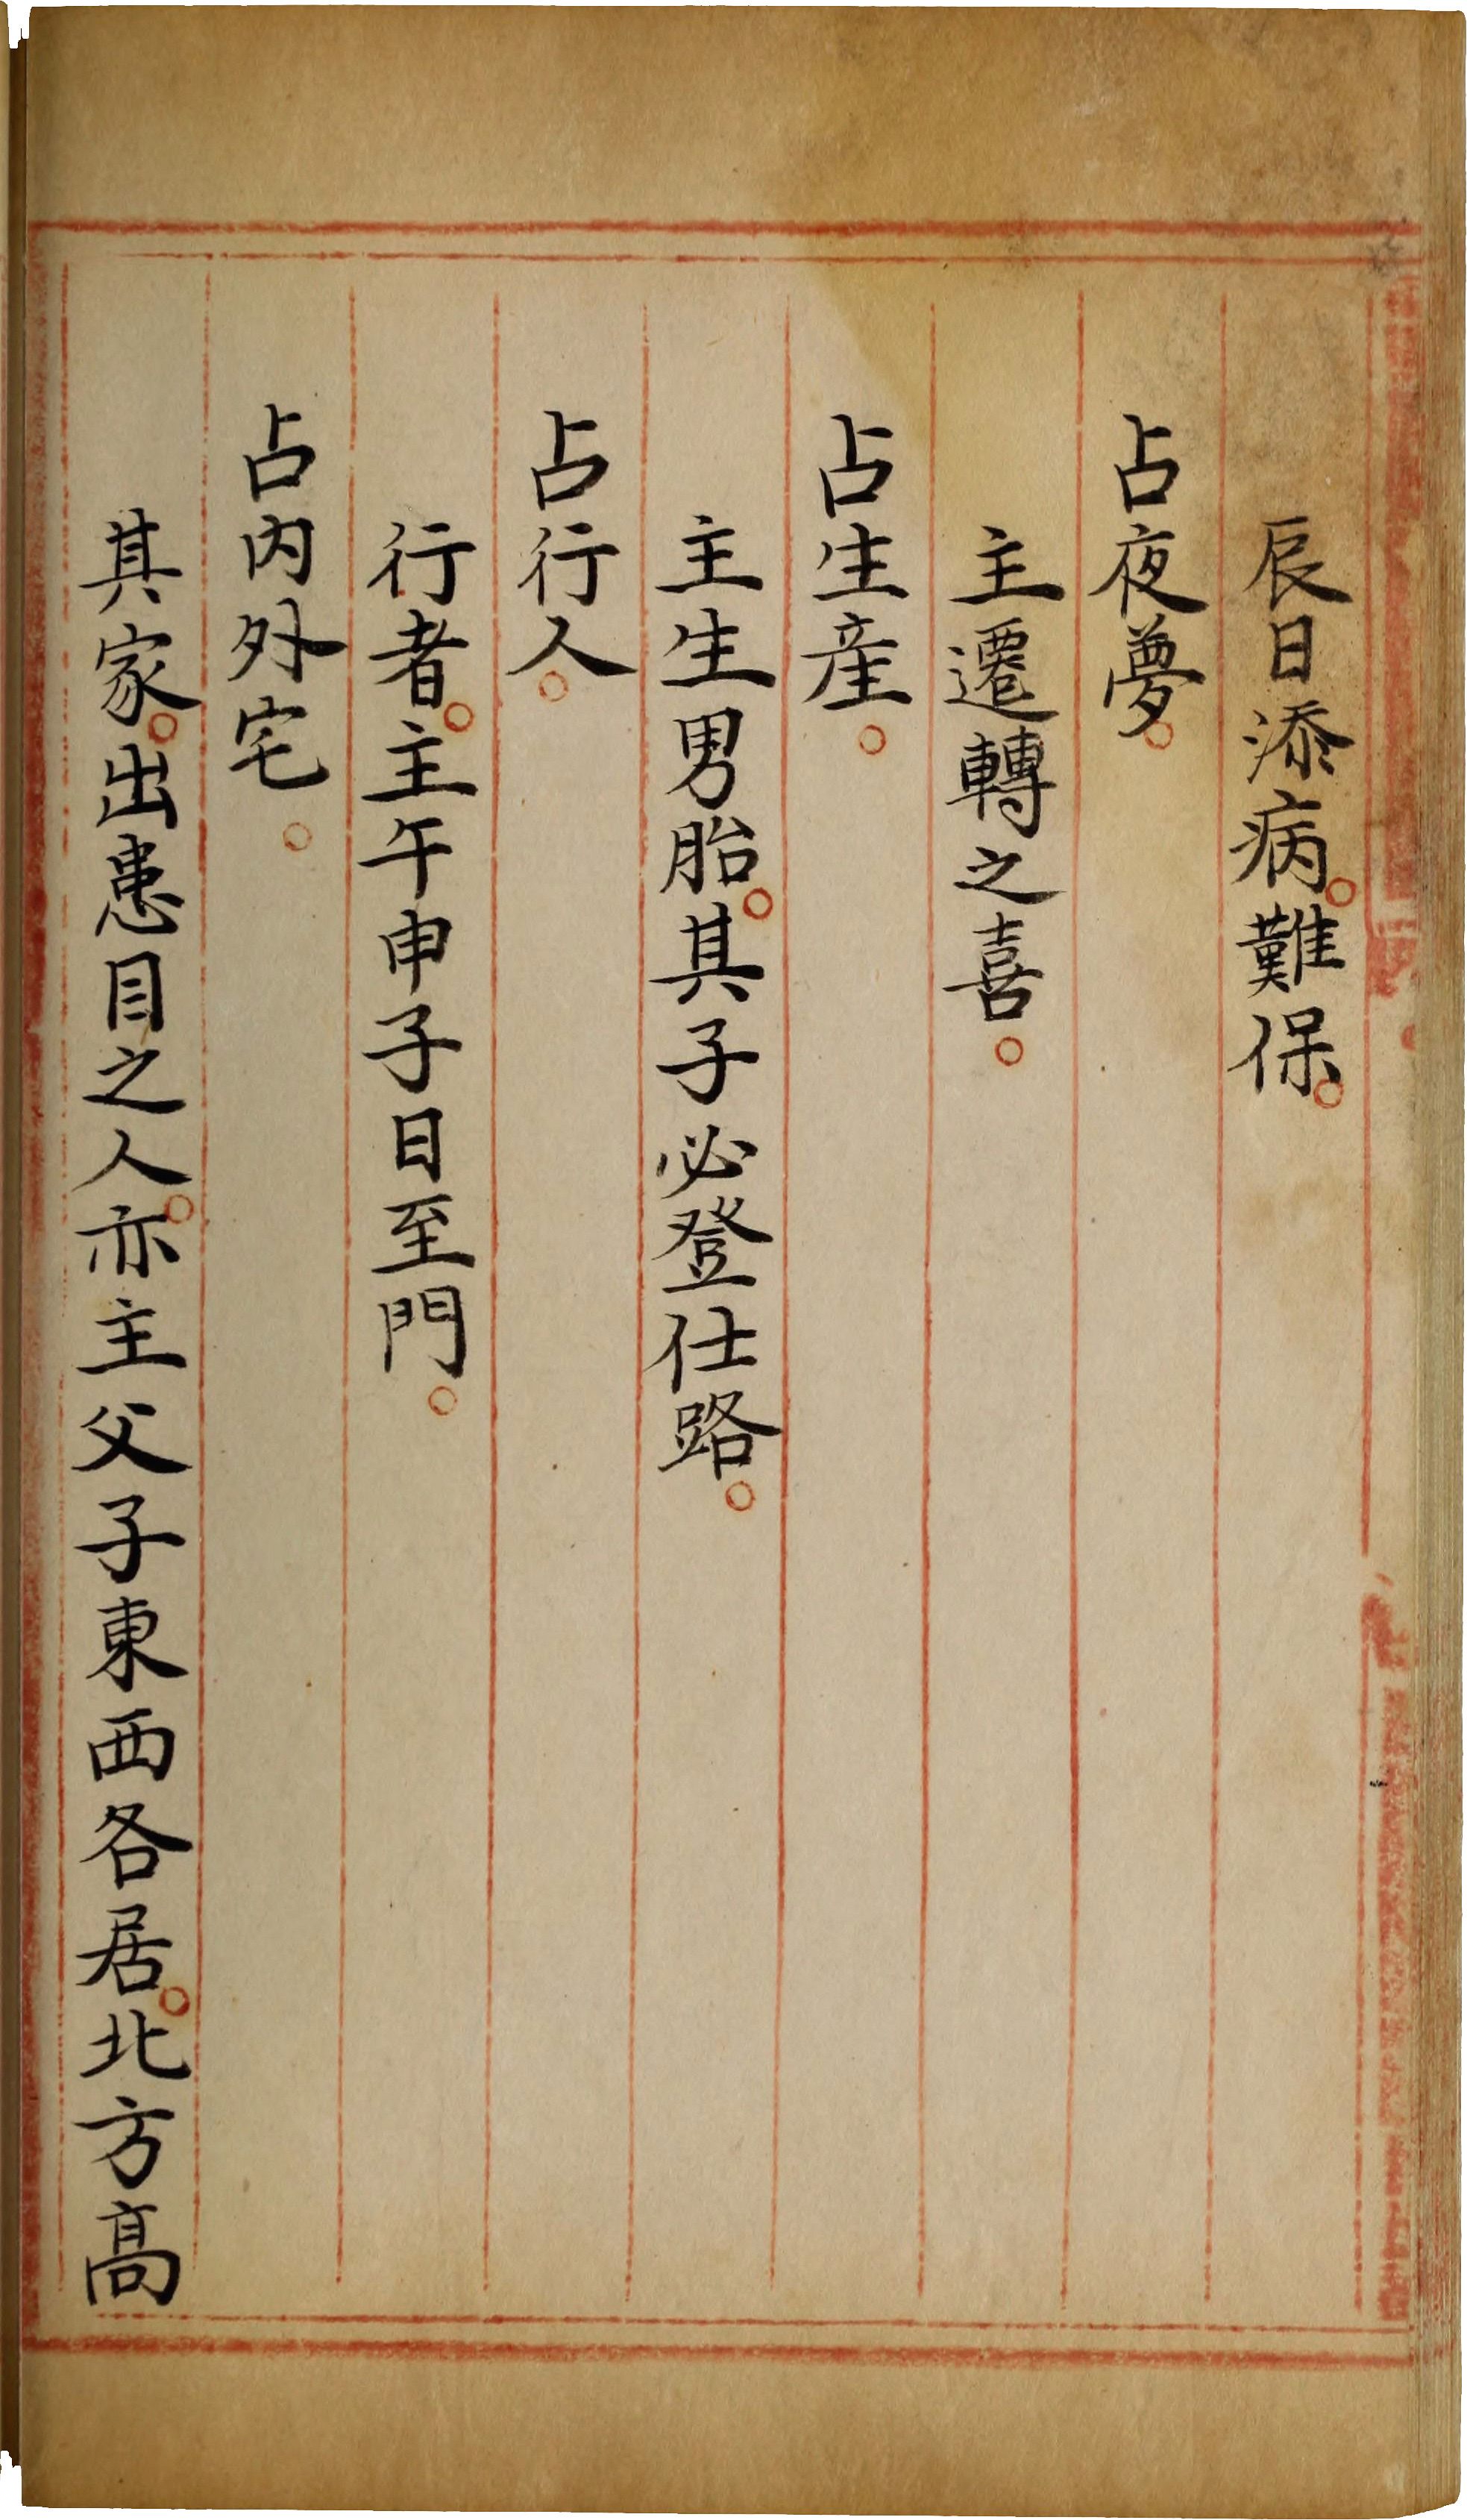 辰日添病。難保。
占夜夢。
主遷轉之喜。
占生産。
主生男胎。其子必登仕路。
占行人。
行者。主午申子日至門。
占内外宅。
其家。出患目之人。亦主父子東西各居。北方高